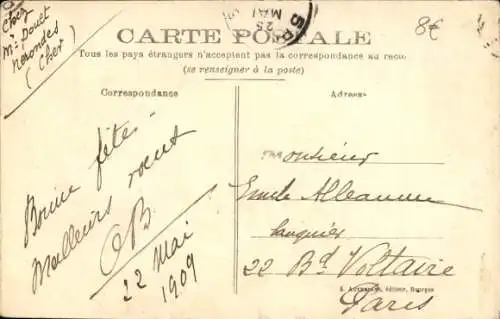 Chez
Mr Douet
Nérondes
(Cher)
25
MAI
8€
CARTE POSTALE
Tous les pays étrangers n'acceptent pas la correspondance au recto
(se renseigner à la poste)
Correspondance
Adresse
Bonne fête
Meilleurs vœux
OB
22 Mai
1909
Monsieur
Emile
22 Bd Voltaire
Paris
éditeur, Bourges